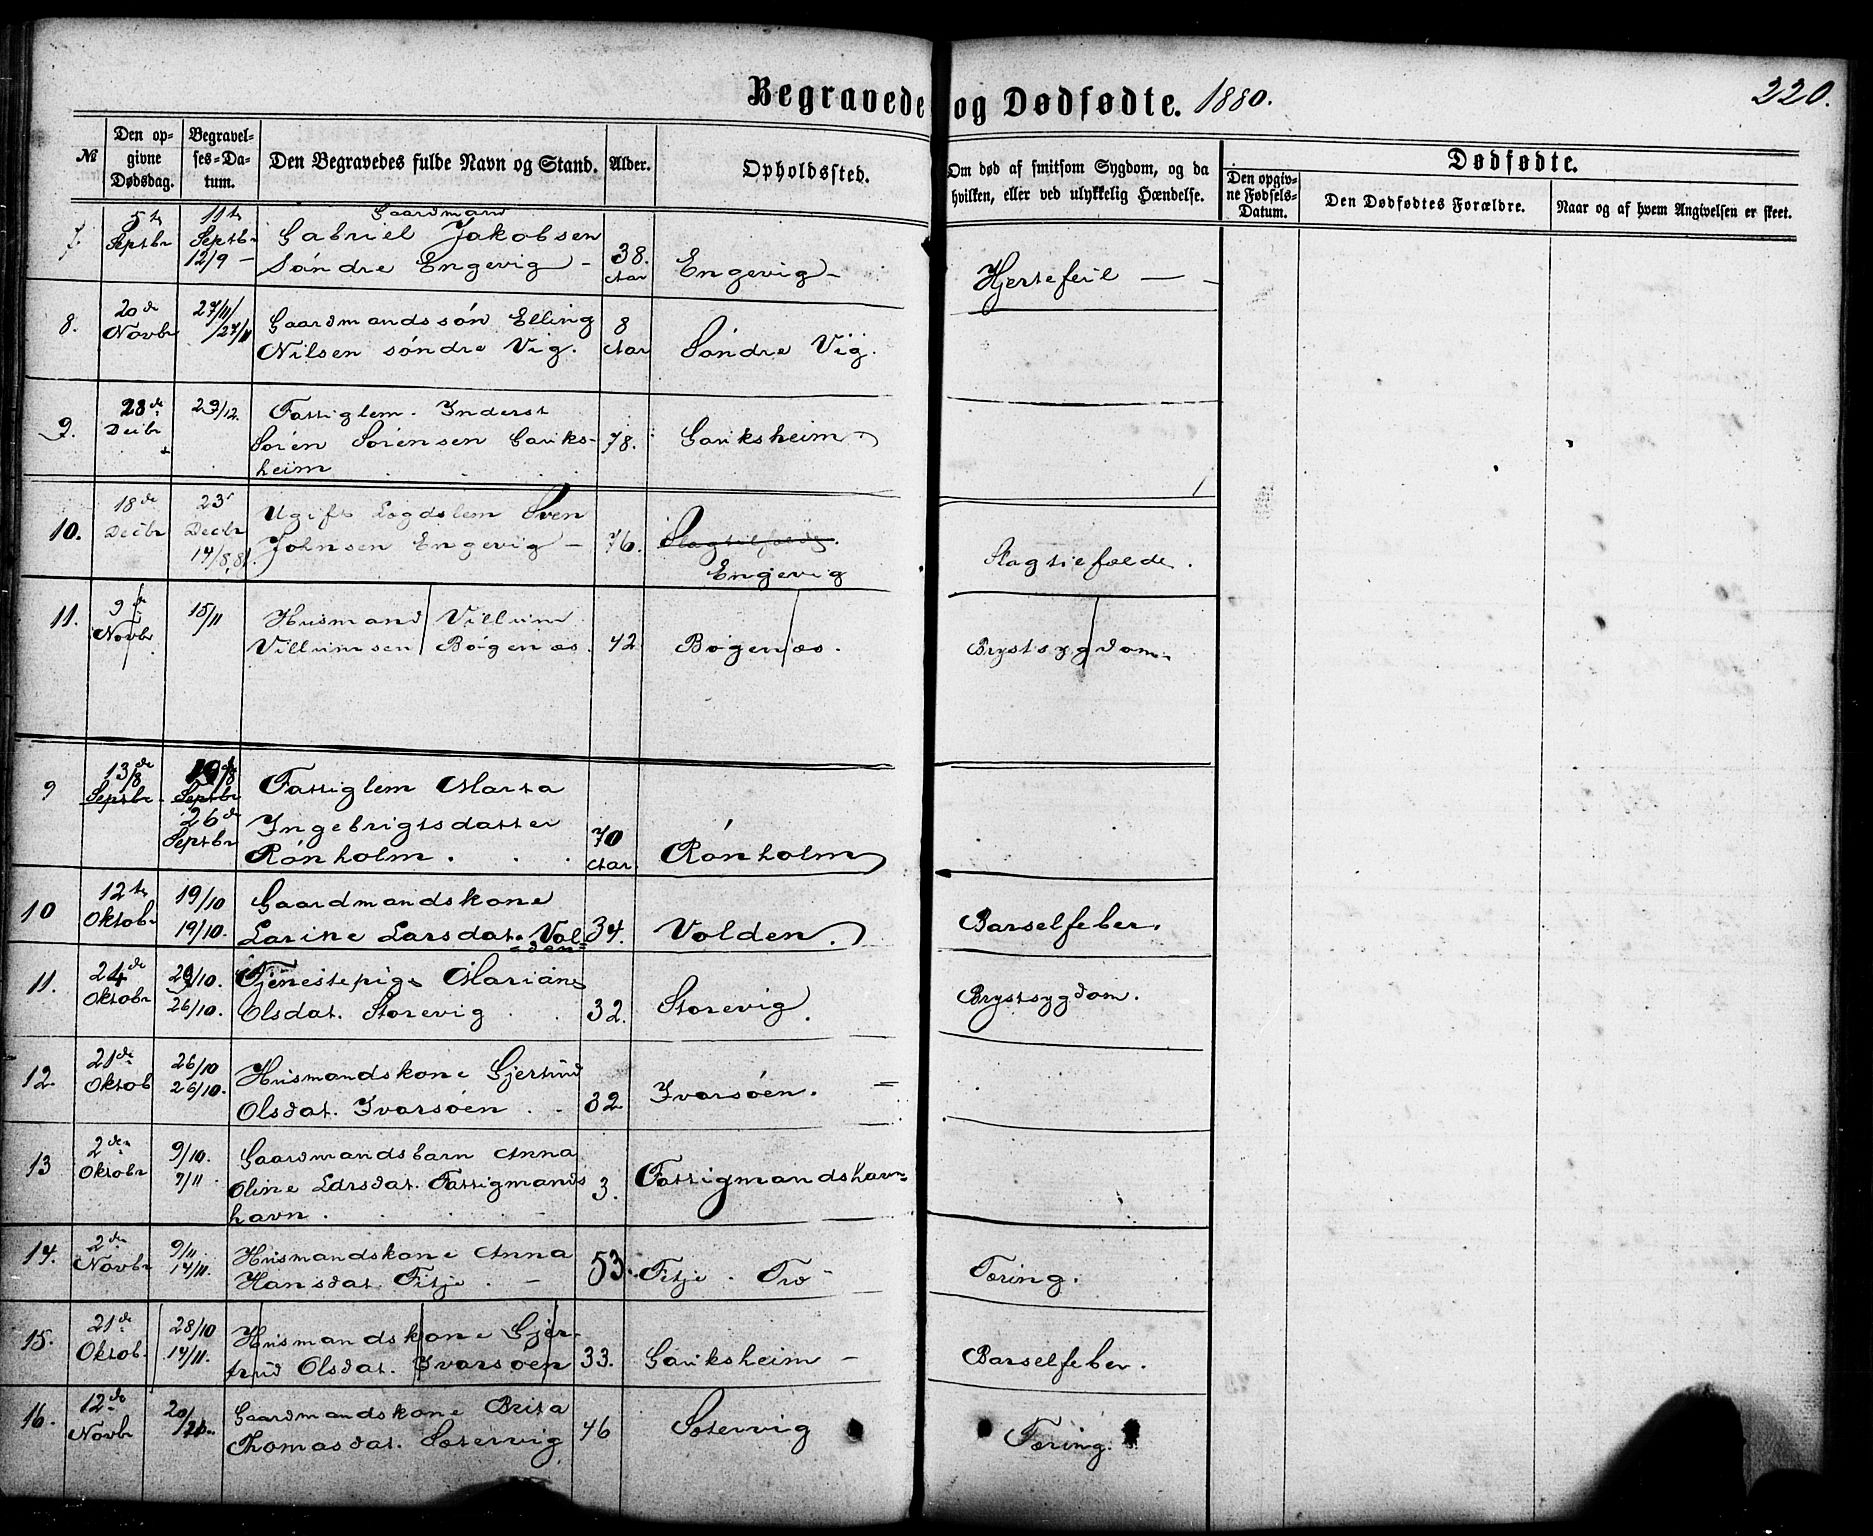 Begravede og Dødfødte. 1880.
220.
№
Den op-
givne
Dødsdag.
Begravel-
ses-Da-
tum.
Den Begravedes fulde Navn og Stand.
Alder.
Opholdssted.
Om død af smitsom Sygdom, og da
hvilken, eller ved ulykkelig Hændelse.
Dødfødte.
Den opgiv-
ne Fødsels-
Datum.
Den Dødfødtes Forældre.
Naar og af hvem Angivelsen er skeet.
7. 5te Septbr 11te Septbr 12/9 – Gaardmand
Gabriel Jakobsen
Söndre Engevig – 38. Aar Engevig – Hjertefeil —
8. 20de Novbr 27/11 /27/11 Gaardmandssön Elling
Nilsen söndre Vig. 8 Aar Söndre Vig.
9. 28de Decbr 29/12. Fattiglem. Inderst
Sören Sörensen Gauks-
heim 78. Gauksheim
10. 18de Decbr 23 Decbr 14/8.81. Ugift Legdslem Sven
Johnsen Engevig – 76. Slagtilfælde.
Engevig Slagtilfælde.
11. 9de Novbr. 15/11 Husmand Villum
Villumsen Bögenæs. 42 Bögenæs. Brystsygdom.
9 13de/8 Septbr. Septbr 26de Septbr Fattiglem Marta
Ingebrigtsdatter
Rönholm. 70 Aar Rönholm
10 12te Oktobr 19/10 19/10. Gaardmandskone
Larine Larsdat. Vol-
den 34. Volden. Barselfeber.
11. 24de Oktobr 26/10. Tjenestepige Mariane
Olsdat. Storevig 32. Storevig. Brystsygdom.
12. 21de Oktob 26/10 26/10. Husmandskone Gjertrud
Olsdat. Ivarsöen. 32 Ivarsöen.
13 2den Oktobr 9/10. 7/11. Gaardmandsbarn Anna
Oline Larsdat. Fattigmands
havn. 3. Fattigmandshavn
14. 2den Novbr 9/11 14/11. Husmandskone Anna
Hansdat. Fitje. – 53. Fitje. Træ Tæring.
15. 21de Oktob. 28/10 14/11. Husmandskone Gjer-
trud Olsdat. Ivarsöen 33. Gauksheim – Barselfeber.
16. 12de Novbr 20/ Gaardmandskone Brita
Thomasdat. Sætervig 46 Sætervig Tæring.